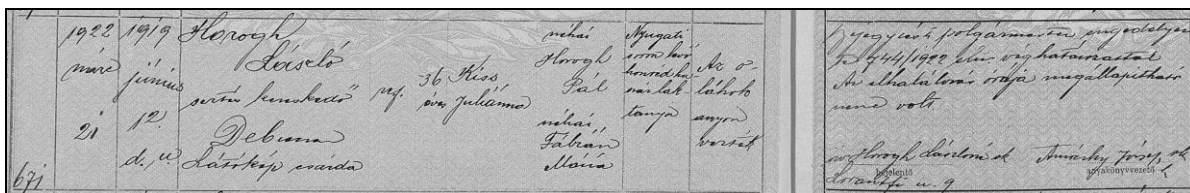 671
1922
márc
21
1919
június
12.
d. u.
Horogh
László
sertés kereskedő
Debrecen
Látókép csárda
ref.
36
éves
Kiss
Juliánna
néhai
Horogh
Pál
néhai
Fábián
Mária
Nyugati
soron levő
honvéd hu-
szár lak-
tanya
Az o-
láhok
agyon
verték
polgármester engedélye
444/1922 véghatározattal
Az elhalálozás órája megállapítható
nem volt.
Horogh Lászlóné
bejelentő
József
anyakönyvvezető
u. 9